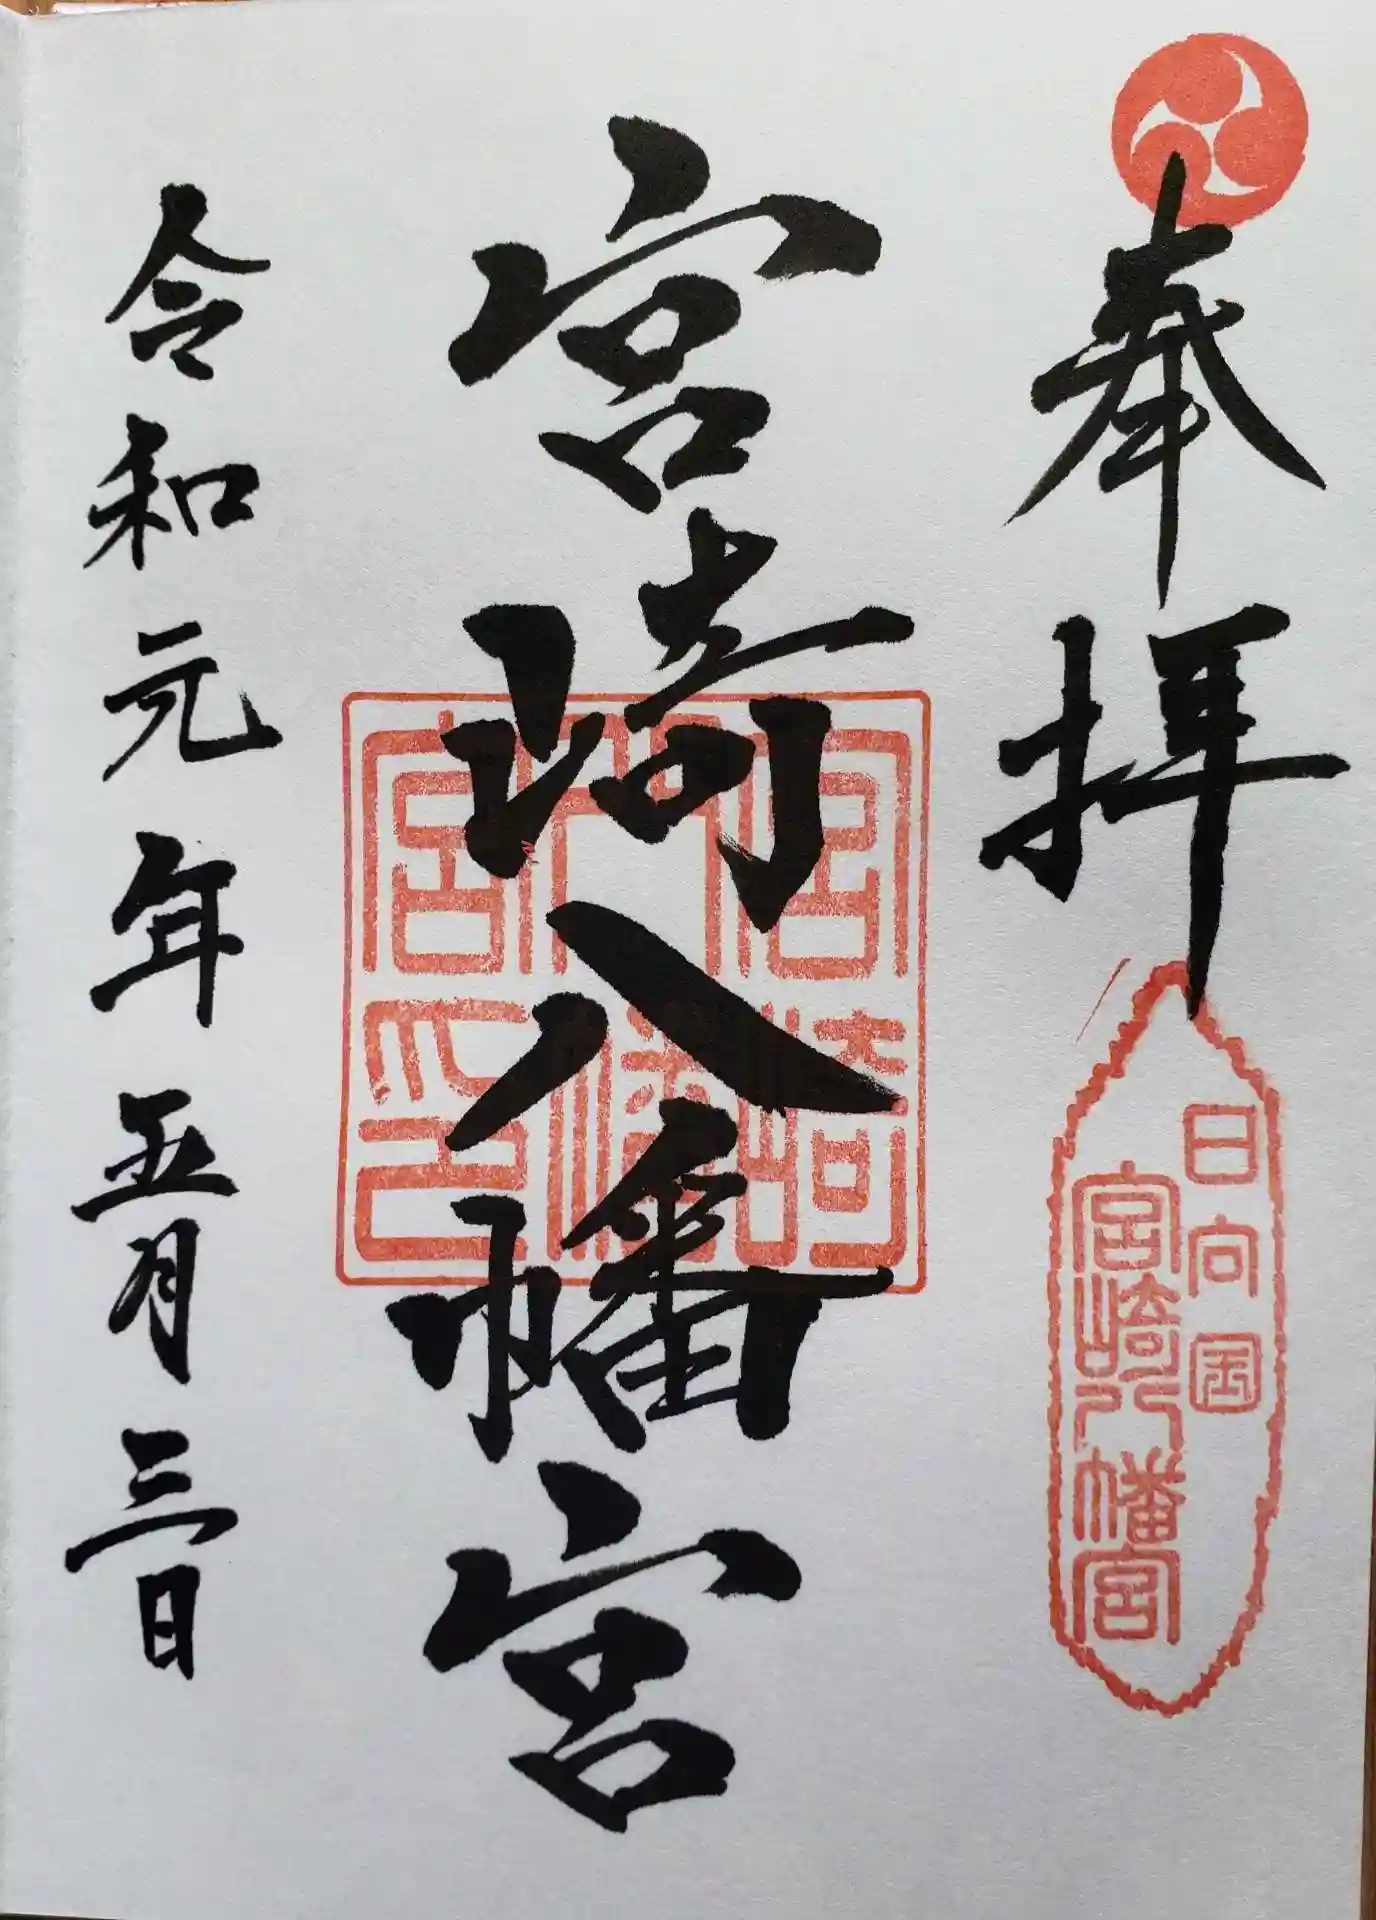 奉拝
日向国
宮崎八幡宮
宮崎八幡宮
宮崎
八幡
宮印
令和元年五月三日